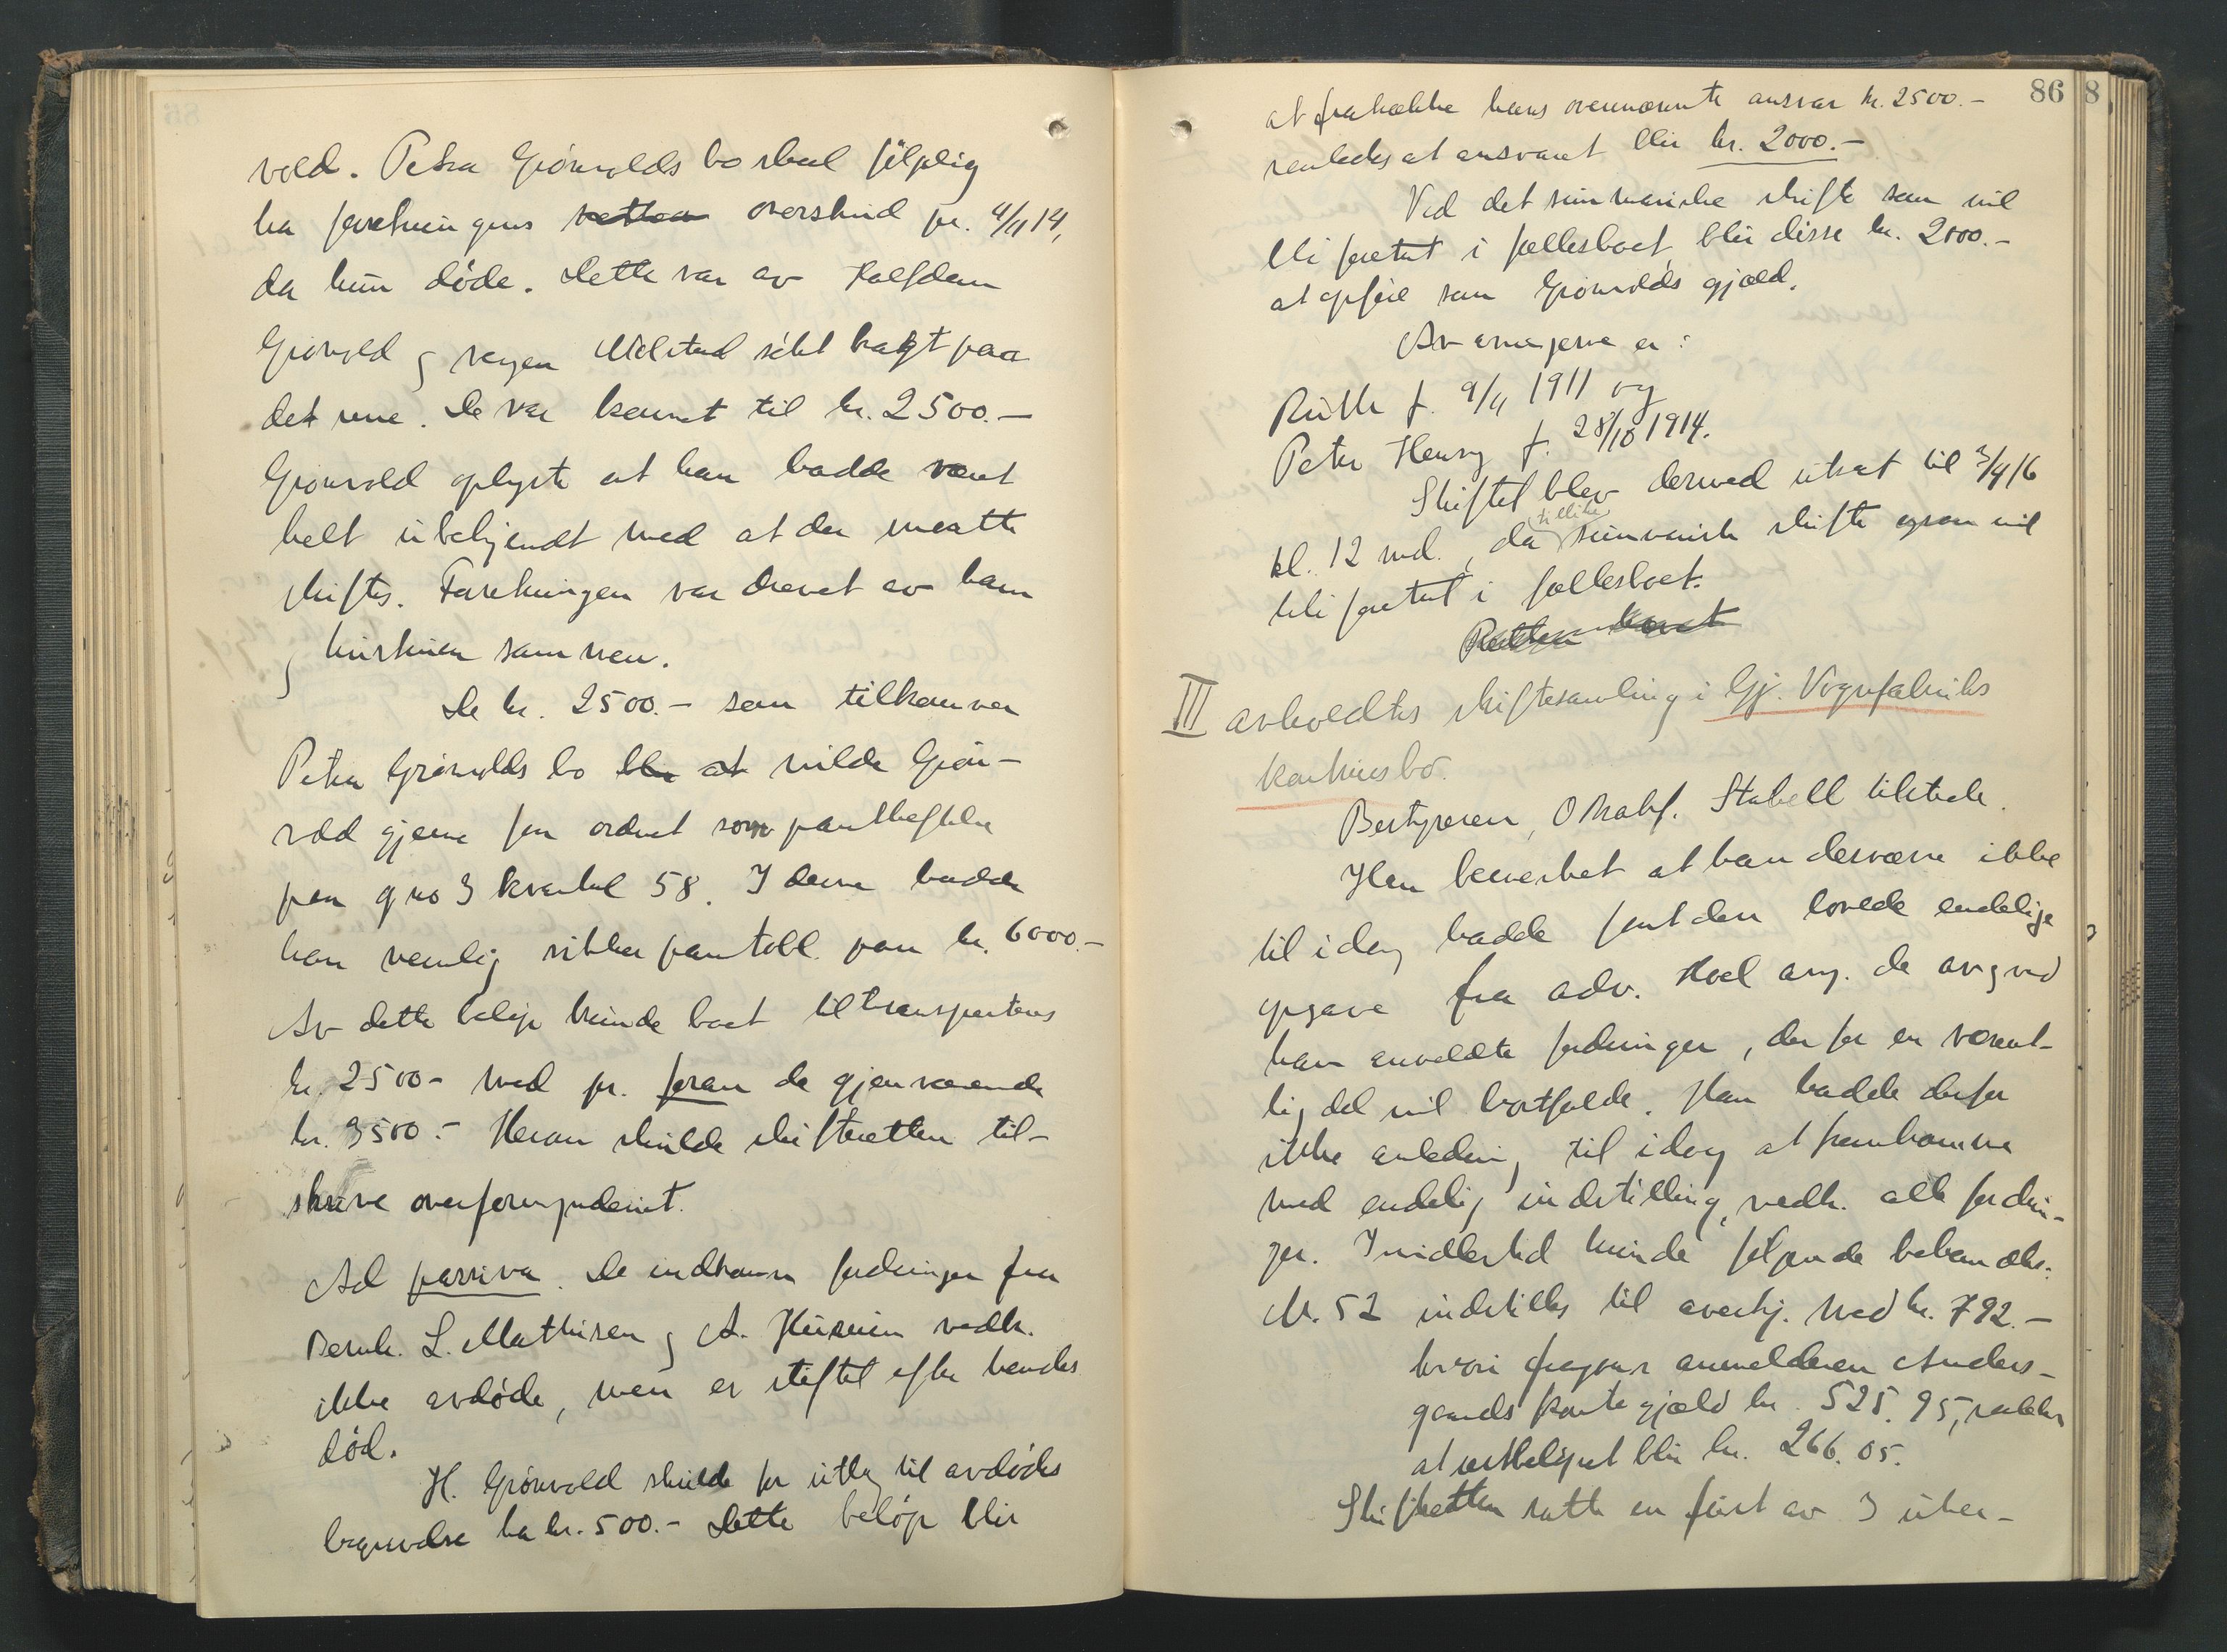 vold. Petra Grönvolds bo skal følgelig
ha forretningens retten overskud pr. 4/11 14,
da hun døde. Dette var av Halfdan
Grönvold og svigerm Melstad søkt bragt paa
det rene. De var kommet til kr. 2500.—
Grönvold oplyste at han hadde været
helt ubekjendt med at der maatte
skiftes. Forretningen var drevet av ham
og hustruen sammen.
De kr. 2500.— som tilkommer
Petra Grönvolds bo blir at vilde Grön-
vold gjerne faa ordnet som pantheftelse
paa g no 3 kvartal 58. I denne hadde
han nemlig sikker pantobl. paa kr. 6000.—
Av dette beløp kunde boet tiltransporteres
kr. 2500— med pr. foran de gjenværende
kr. 3500.— Herom skulde skifteretten til-
skrive overformynderiet.
Ad passiva. De indkomne fordringer fra
Bernh. L. Mathisen og A. vedk.
ikke avdøde, men er stiftet efter hendes
død.
H. Grönvold skulde for utlæg til avdødes
begravelse ha kr. 500.— Dette beløp blir
86 8
at fratrække hans ovennævnte ansvar kr. 2500.—
saaledes at ansvaret blir kr. 2000.—
Ved det summariske skifte som vil
bli foretat i fællesboet, blir disse kr. 2000.—
at opføre som Grönvolds gjæld.
Arvingerne er:
Ruth f. 9/11 1911 og
Peter Henry f. 28/10 1914.
Skiftet blev dermed utsat til 3/4 16
kl. 12 md., da (tillike) summarisk skifte ogsaa vil
bli foretat i fællesboet.
Retten hævet
III avholdtes skiftesamling i Gj. Vognfabriks
konkursbo.
Bestyreren, O.r.sakf. Stabell tilstede.
Han bemerket at han desværre ikke
til idag hadde faat den lovede endelige
opgave fra adv. Hoel ang. de av og ved
ham anmeldte fordringer, der for en væsent-
lig del vil bortfalde. Han hadde derfor
ikke anledning til idag at fremkomme
med endelig indstilling vedk. alle fordrin-
ger. Imidlertid kunde følgende behandles:
Nr. 52 indstilles til averkj. med kr. 792.—
hvori fragaar anmelderen Anders-
gaards konto gjæld kr. 525.95, saaledes
at restbeløpet blir kr. 266.05.
Skifteretten satte en frist av 3 uker-